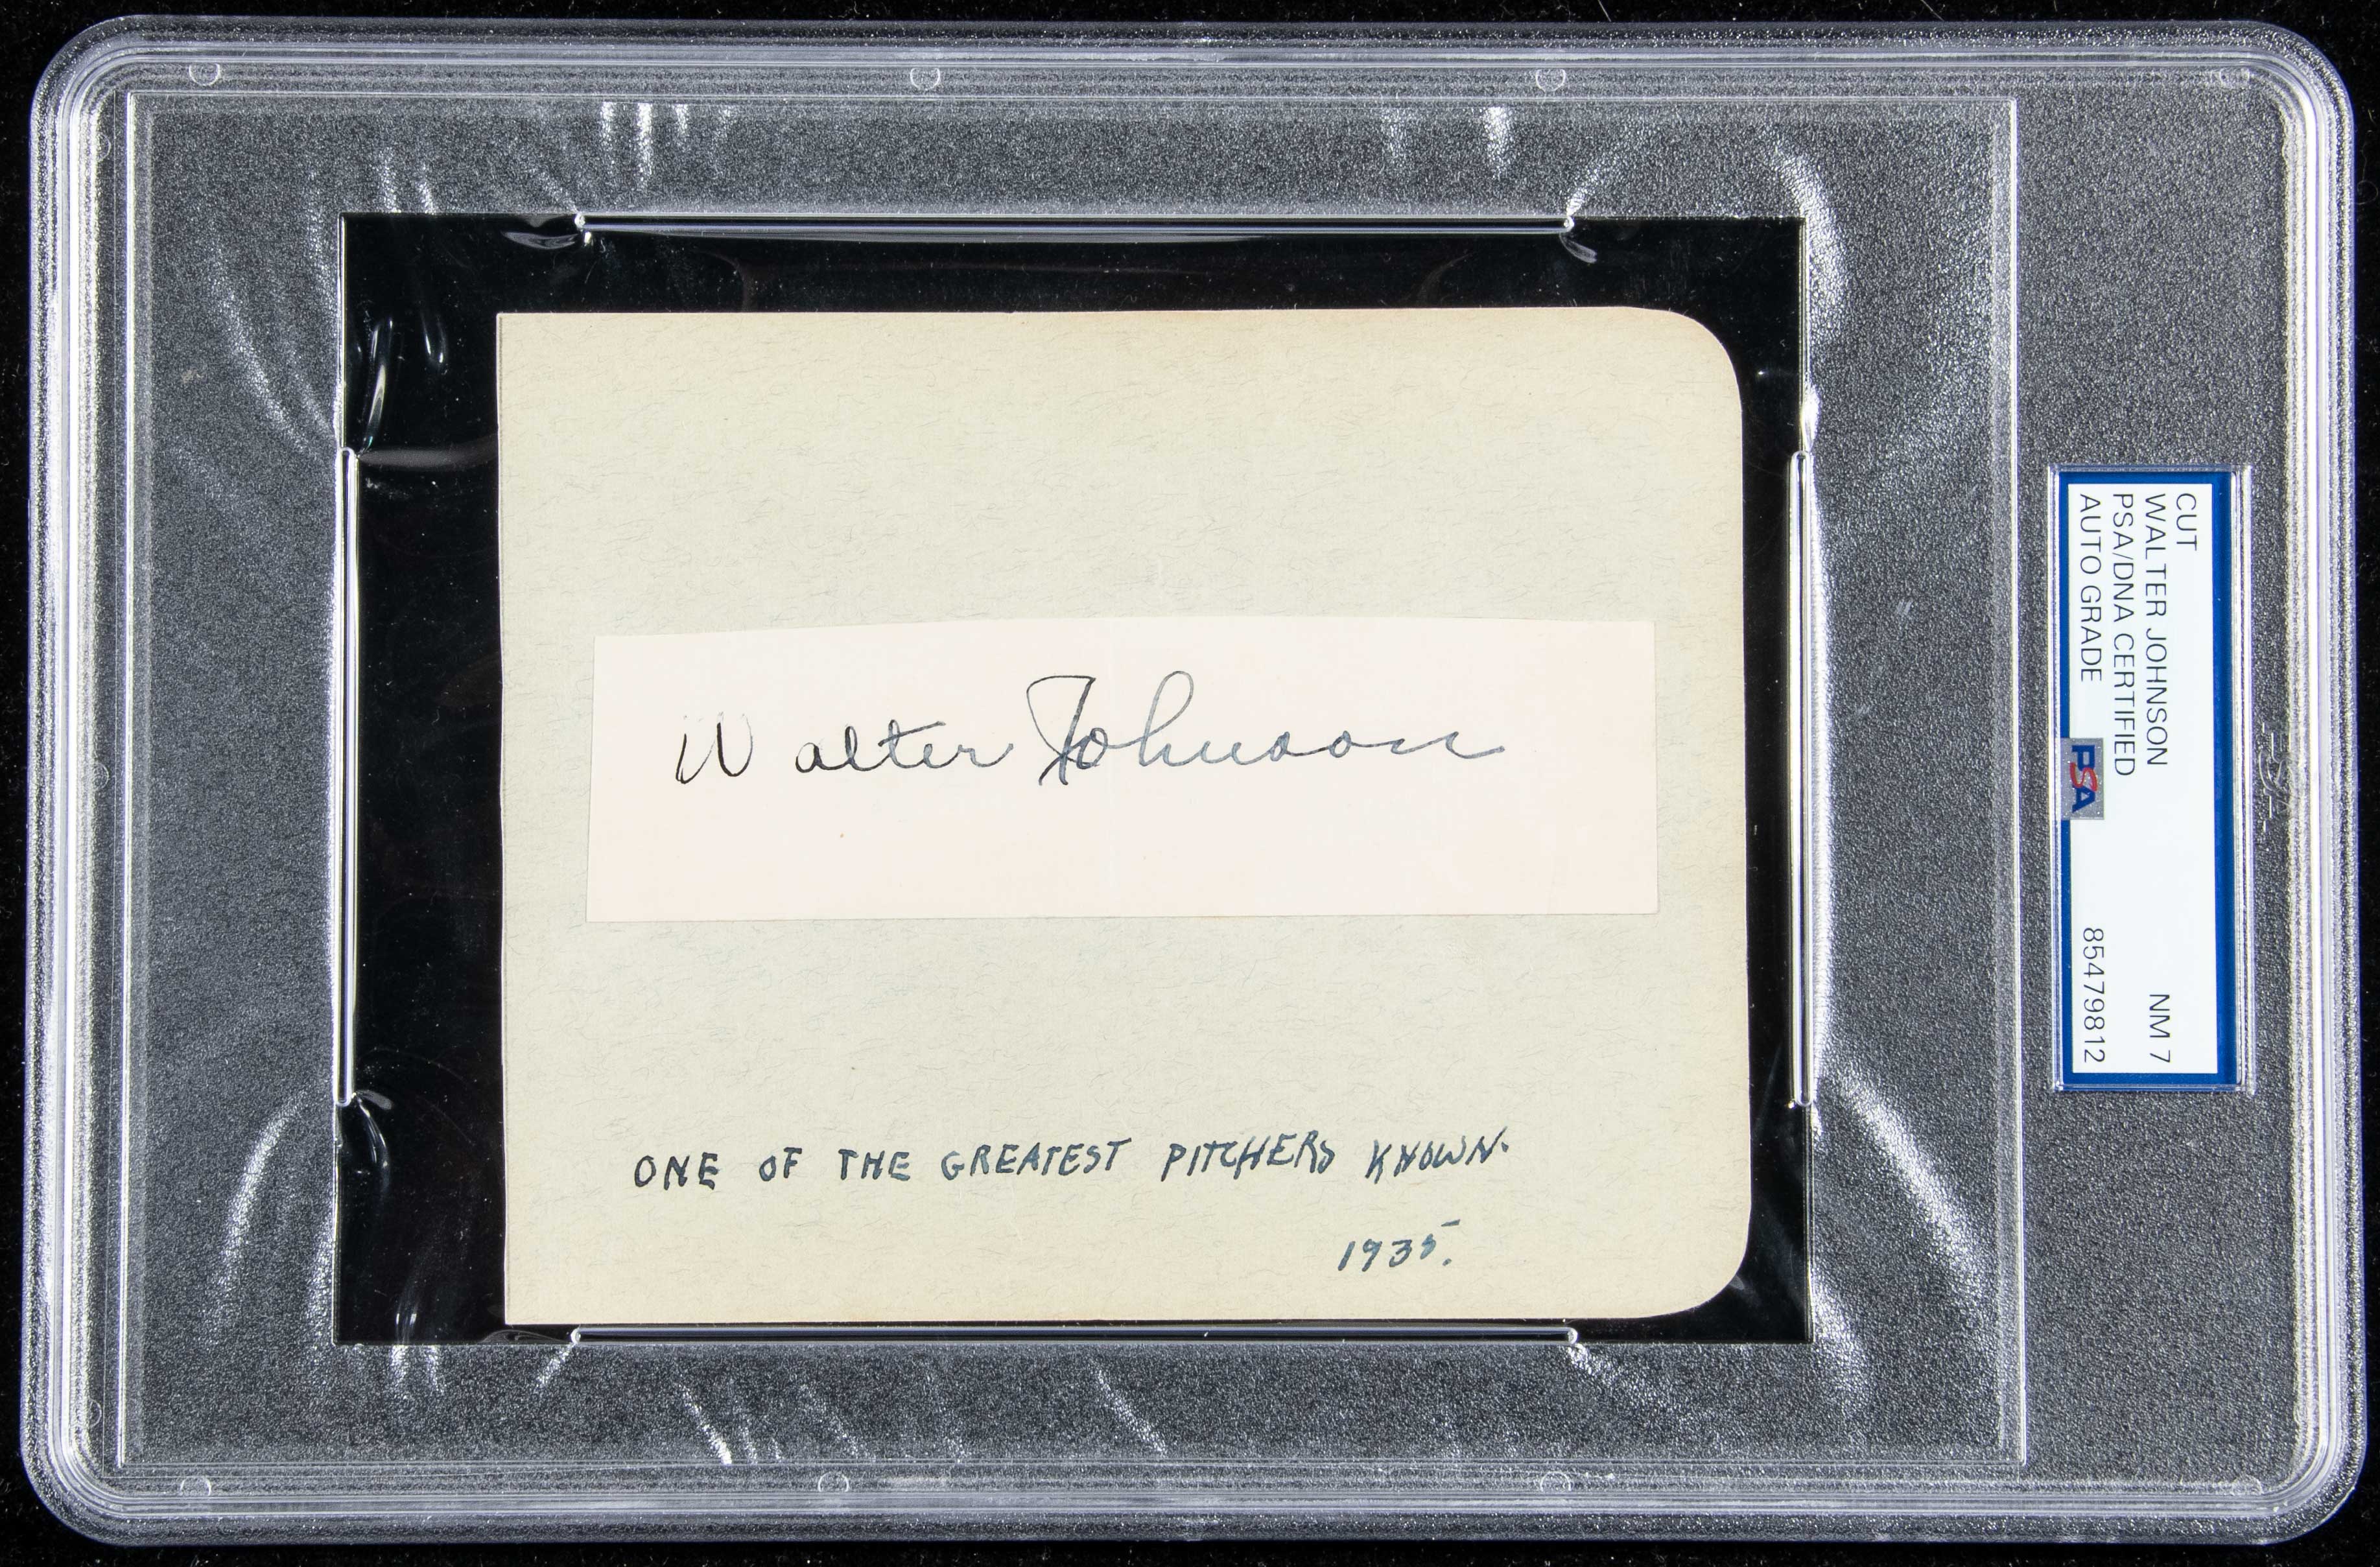 Walter Johnson
ONE OF THE GREATEST PITCHERS KNOWN.
1935.
CUT
WALTER JOHNSON NM 7
PSA/DNA CERTIFIED
AUTO GRADE PSA 85479812